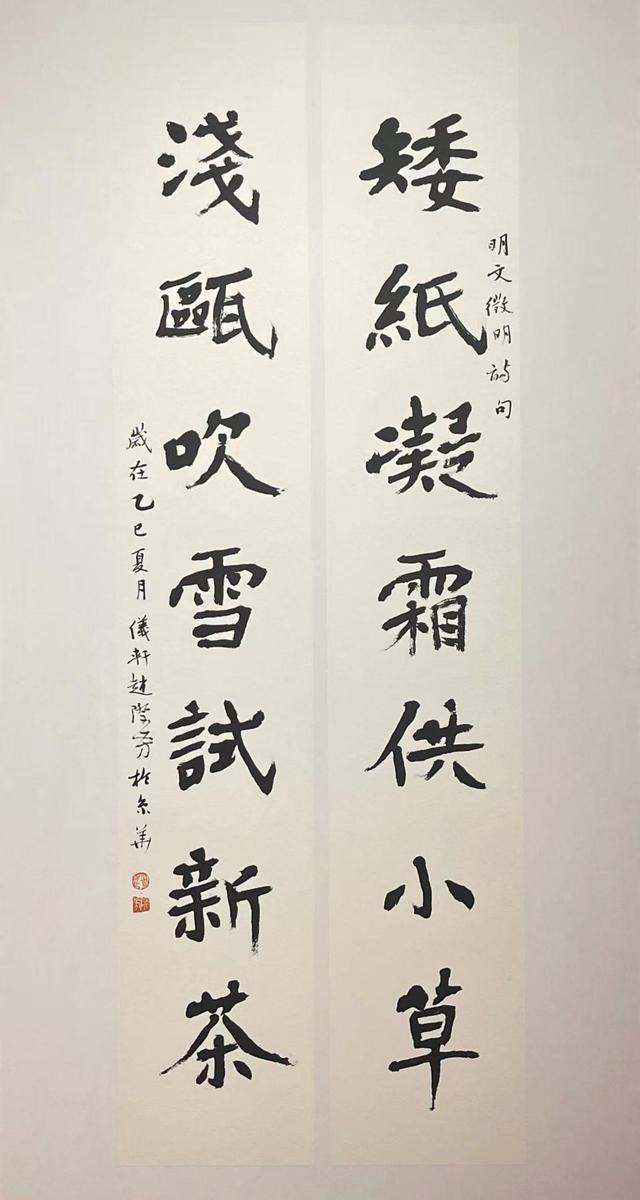 明文徵明詩句
矮紙凝霜供小草
淺甌吹雪試新茶
歲在乙巳夏月儀軒趙學芳於京華